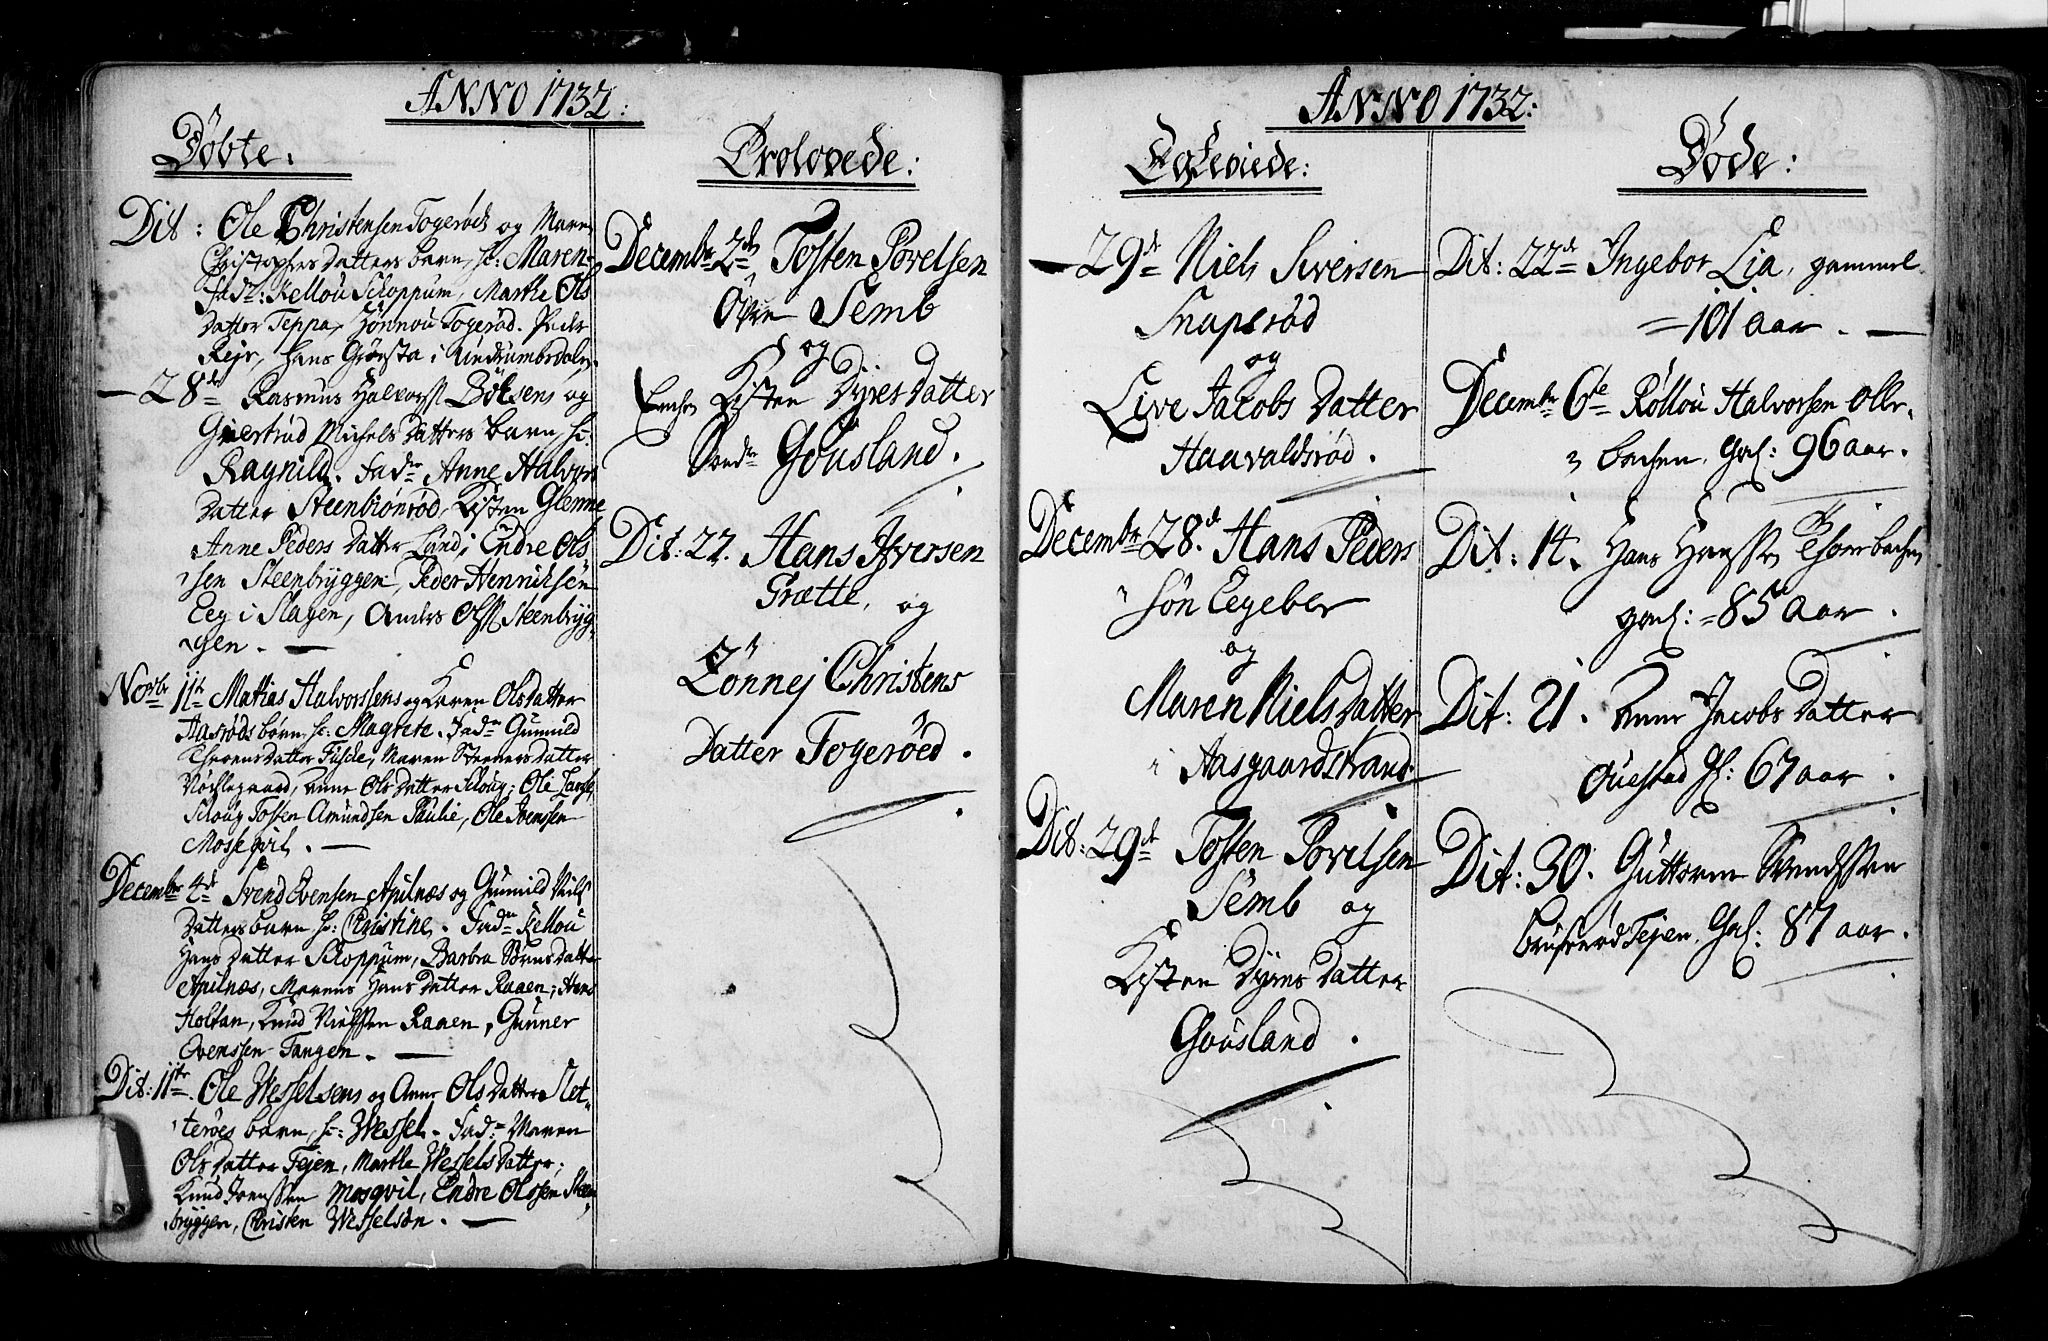 ANNO 1732:
Döbte.
Dit: Ole Christensen Fogeröds og Maren
Christophersdatters barn, h: Maren.
Fad: Kellou Skoppum, Marthe Ols
datter Teppa, Fogeröd. Peder
Rejr, Hans Grönsta i
28de Rasmus Halvorss Böksens og
Giertrud Michelsdatters barn, h:
Ragnild. Fadr Anne Halvors
datter Steenbiönröd, Kisten Glenne
Anne Pedersdatter Lund; Endre Ols
sen Steenbryggen, Peder Henriksön
Eeg i Slagen, Anders Olss Steenbryg-
gen.
Novbr 11te Mathias Halvorssens og Karen Olsdatter
Aasröds börn, h: Magrete. Fadr Gunnild
datter Fusde, Maren datter
Nöchlegaard, Anne Olsdatter Skoug; Ole
Skoug Tosten Amundsen Paulie, Ole Svensen
Mosseqvil.
Decembr 4de Svend Evensen Apilnæs og Gunnild Niels
datters barn h: Christine. Fadr Kellou
Hansdatter Skoppum, Barbra datter
Apilnæs, Maren Hansdatter Raaen; Hans
Holtan, Knud Nielssen Raaen, Gunner
Evenssen Tangen.
Dit: 11te. Ole Wesselsens og Anne Olsdatter Slet-
teröes barn, h: Wessel. Fadr Maren
Olsdatter Tejen, Marthe Wesselsdatter;
Knud Svenssen Mosqvil, Endre Olssen Steen
bryggen, Christen Wesselsön.
Prolovede:
Decembr 2de Tosten Povelsen
Öfre Semb
og
Enchen Kisten Dyresdatter
Gousland.
Dit: 22. Hans Ifversen
Grætte, og
Lönnej Christens
datter Fogeröed.
ANNO 1732:
Egteviede:
29de Niels Siversen
Snapsröd
og
Live Jacobsdatter
Haavaldsröd.
Decembr 28de Hans Peders
sön Eegeber
og
Maren Nielsdatter
i Aasgaardstrand
Dit: 29de Tosten Povelsen
Semb og
Kisten Dyresdatter
Gousland.
Döde:
Dit: 22de Ingebor Lia, gammel
101 aar.
Decembr 6te Röllou Halvorsen Olle-
bachen. Gal: 96 aar.
Dit: 14. Hans Hanssen Thorebachen
gal: 85 aar.
Dit: 21. Anne Jacobsdatter
Ouestad Gl: 67 aar.
Dit: 30. Guttorm Svendssen
Bruseröd Tejen. Gal: 87 aar.